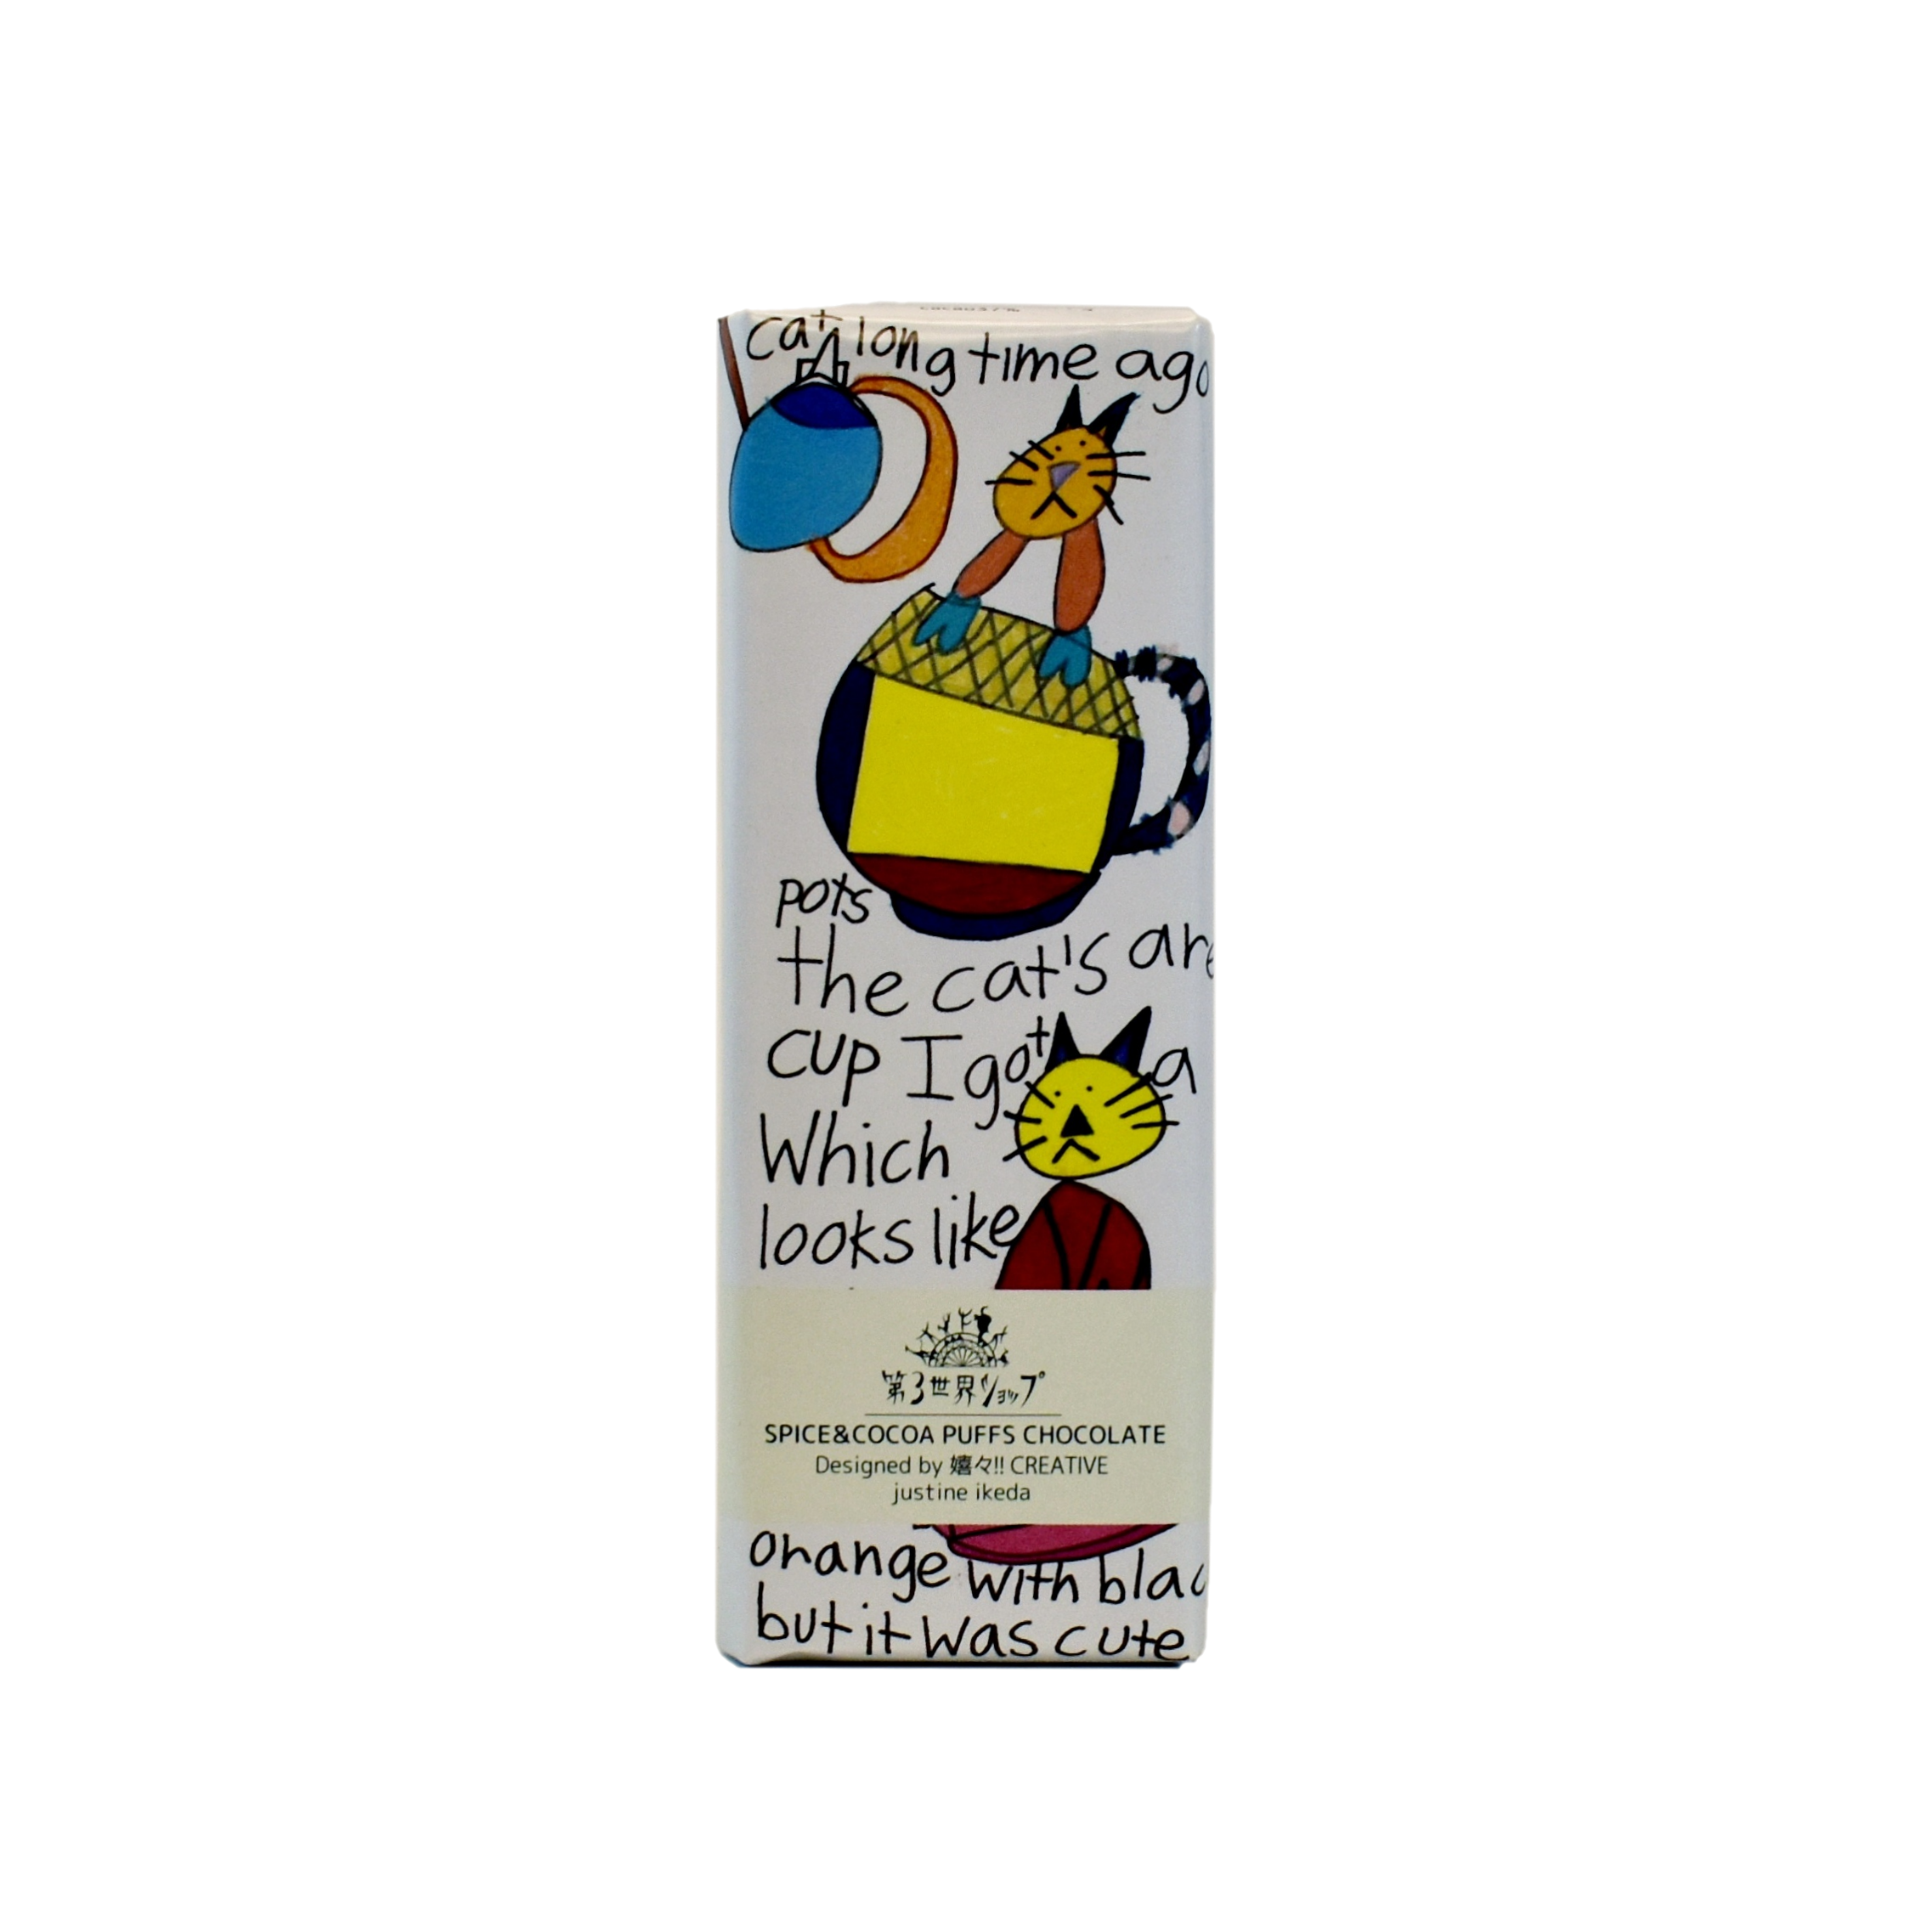 cat long time ago
pots
the cat's are
cup I got a
Which
looks like
第3世界ショップ
SPICE&COCOA PUFFS CHOCOLATE
Designed by 嬉々!! CREATIVE
justine ikeda
orange with blac
but it was cute